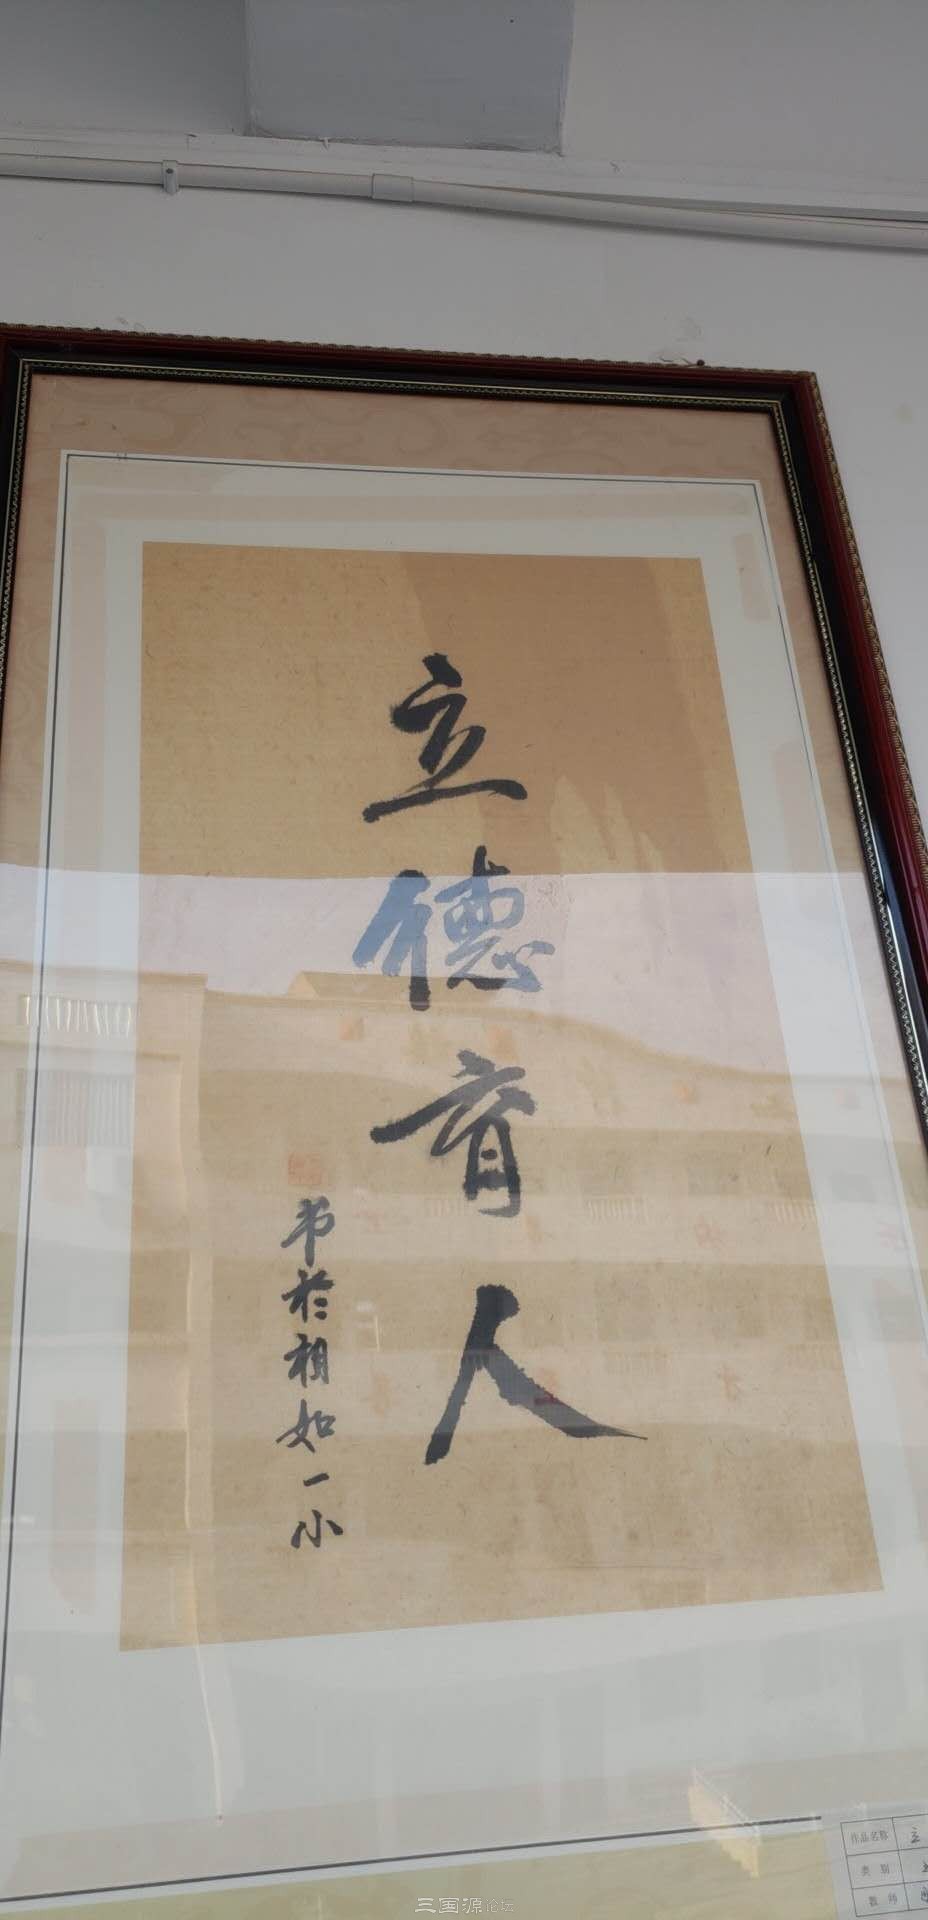 立德育人
书於相如一小
作品名称 立
类别
教师
三国源论坛